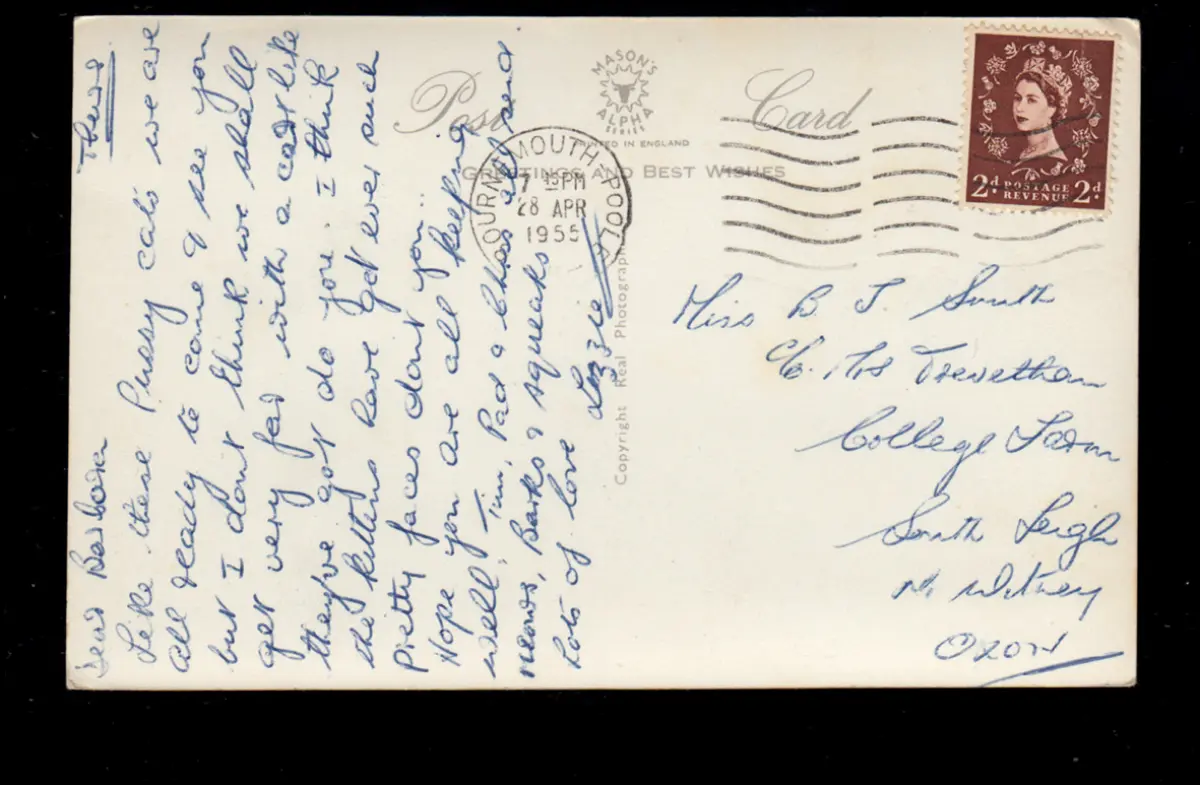 Thurs
Dear Barbara
Like these Pussy cats we are
all ready to come & see you
but I dont think we shall
get very far with a cart like
they've got do you. I think
the kittens have got ever such
pretty faces dont you..
Hope you are all keeping
well. Tim, Pad & Chas all send
meows, Barks & squeaks
Lots of love
Lizzie
Post Card
MASON'S
ALPHA
SERIES
PRINTED IN ENGLAND
GREETINGS AND BEST WISHES
BOURNEMOUTH-POOLE
7 45 PM
28 APR
1955
Copyright Real Photograph
2d POSTAGE REVENUE 2d
Miss B J. Smith
C/o. Mrs Trevethan
College Farm
South Leigh
Nr Witney
OXON